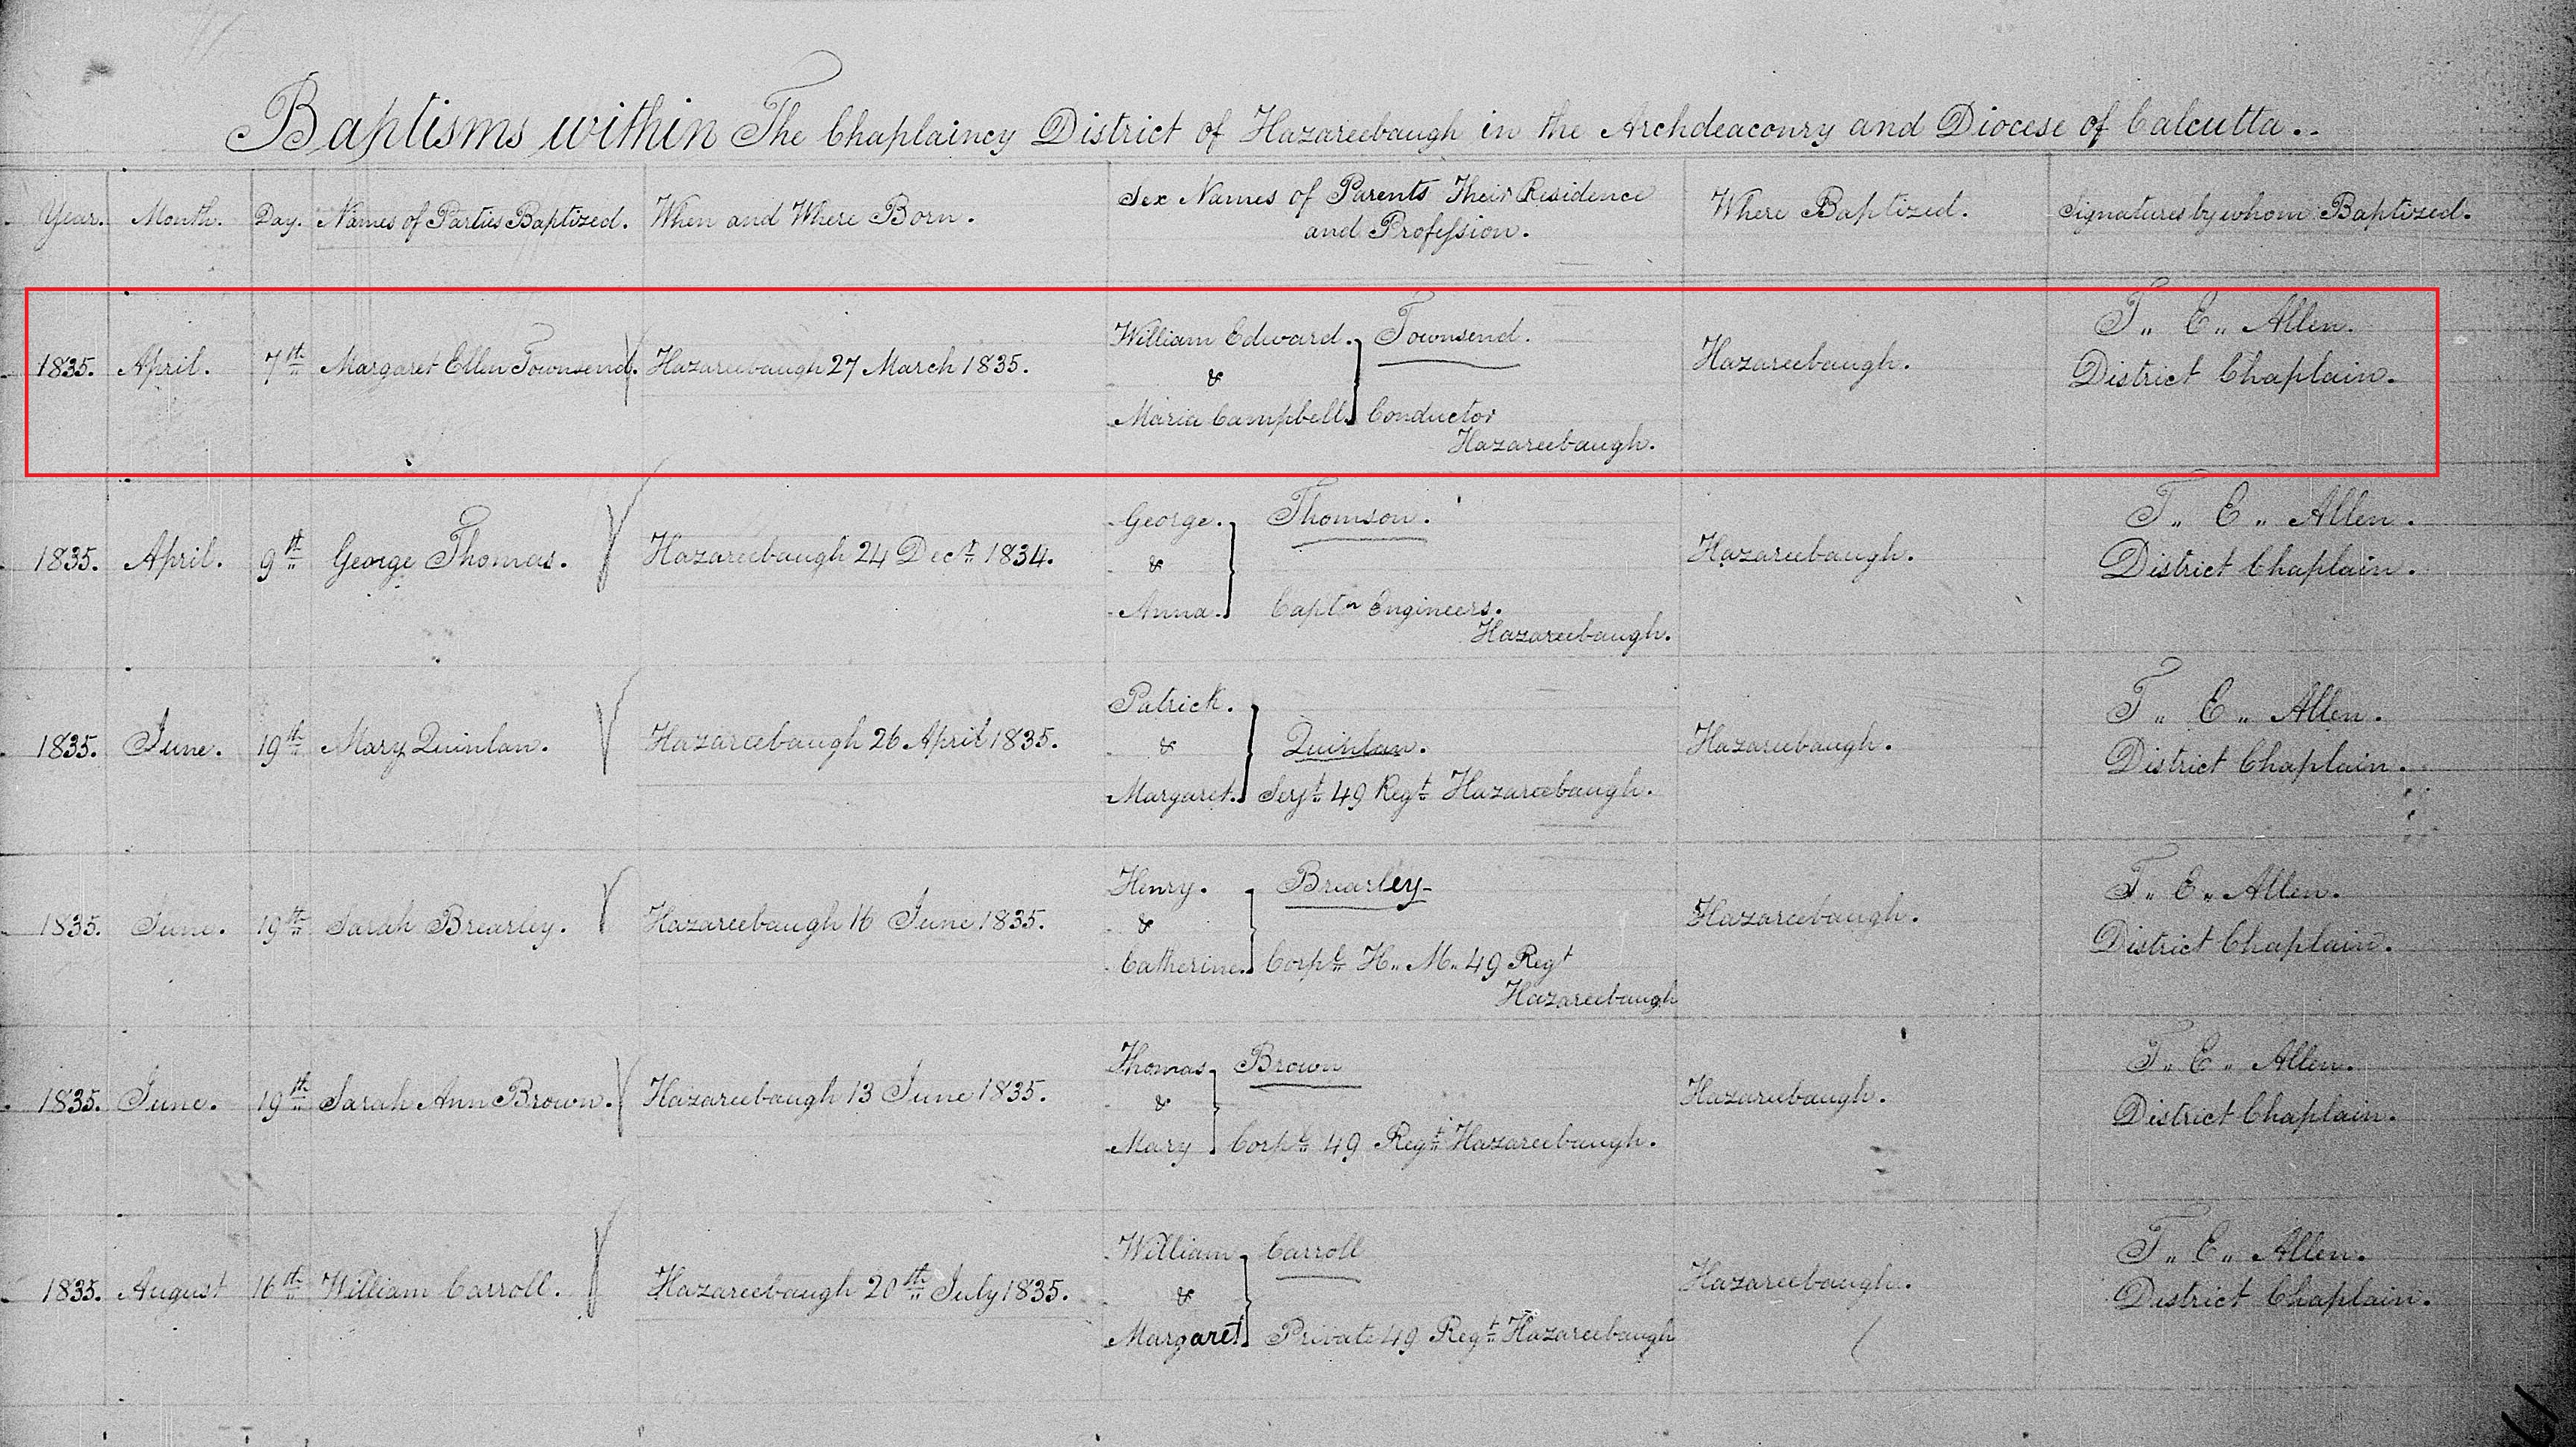 Baptisms within The Chaplaincy District of Hazareebaugh in the Archdeaconry and Diocese of Calcutta..
Year. Month. Day. Names of Parties Baptized. When and Where Born. Sex Names of Parents Their Residence and Profession. Where Baptized. Signatures by whom Baptized.
1835. April. 7th Margaret Ellen Townsend. Hazareebaugh 27 March 1835. William Edward. & Maria Campbell. Townsend. Conductor Hazareebaugh. Hazareebaugh. T. E. Allen. District Chaplain.
1835. April. 9th George Thomas. Hazareebaugh 24 Decr 1834. George. & Anna. Thomson. Captn Engineers. Hazareebaugh. Hazareebaugh. T. E. Allen. District Chaplain.
1835. June. 19th Mary Quinlan. Hazareebaugh 26 April 1835. Patrick. & Margaret. Quinlan. Serjt 49 Regt Hazareebaugh. Hazareebaugh. T. E. Allen. District Chaplain.
1835. June. 19th Sarah Brearley. Hazareebaugh 16 June 1835. Henry. & Catherine. Brearley- Corpl H. M. 49 Regt Hazareebaugh Hazareebaugh. T. E. Allen. District Chaplain.
1835. June. 19th Sarah Ann Brown. Hazareebaugh 13 June 1835. Thomas & Mary Brown Corpl 49 Regt Hazareebaugh. Hazareebaugh. T. E. Allen. District Chaplain.
1835. August 16th William Carroll. Hazareebaugh 20th July 1835. William & Margaret. Carroll Private 49 Regt Hazareebaugh Hazareebaugh. T. E. Allen. District Chaplain.